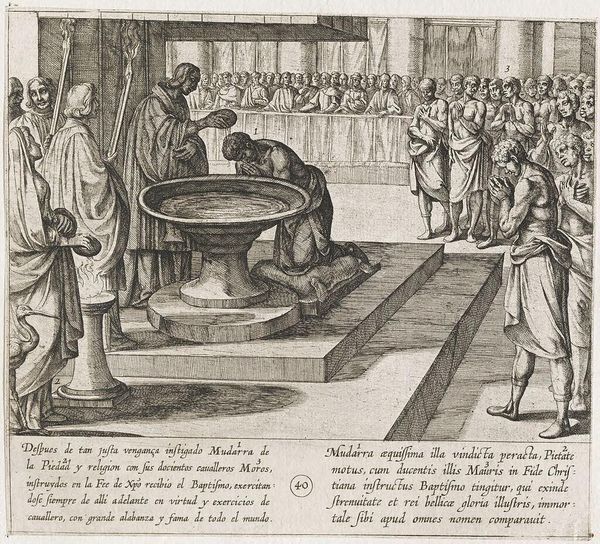 1
3
2
Despues de tan justa vengança instigado Mudarra de
la Piedad y religion con sus docientos cavalleros Moros,
instruydos en la Fee de Xpõ recibio el Baptismo, exercitan
dose siempre de alli adelante en virtud y exercicios de
cavallero, con grande alabanza y fama de todo el mundo.
40
Mudarra æquissima illa vindicta peracta, Pietate
motus, cum ducentis illis Mauris in Fide Chris⸗
tiana instructus Baptismo tingitur, qui exinde
strenuitate et rei bellicæ gloria illustris, immor⸗
tale sibi apud omnes nomen comparavit.